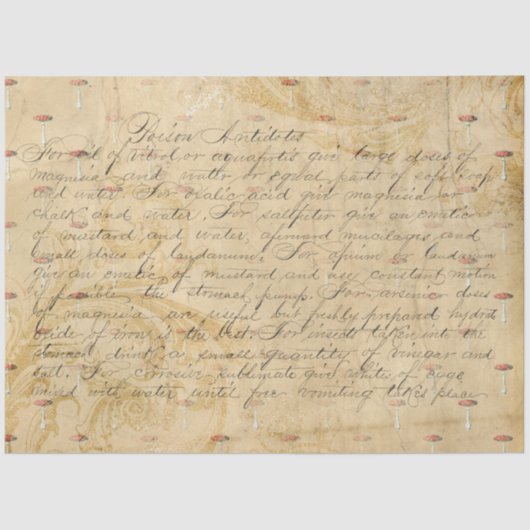 Poison Antidotes
For oil of vitrol or aquafortis give large doses of
magnesia and water or equal parts of soft soap
and water. For oxalic acid give magnesia or
chalk and water. For saltpeter give an emetic
of mustard and water, afterward mucilages and
small doses of laudanum. For opium or laudanum
give an emetic of mustard and use constant motion
if possible the stomach pump. For arsenic doses
of magnesia are useful but freshly prepared hydrat
oxide of iron is the best. For insects taken into the
stomach drink a small quantity of vinegar and
salt. For corrosive sublimate give whites of eggs
mixed with water until free vomiting takes place